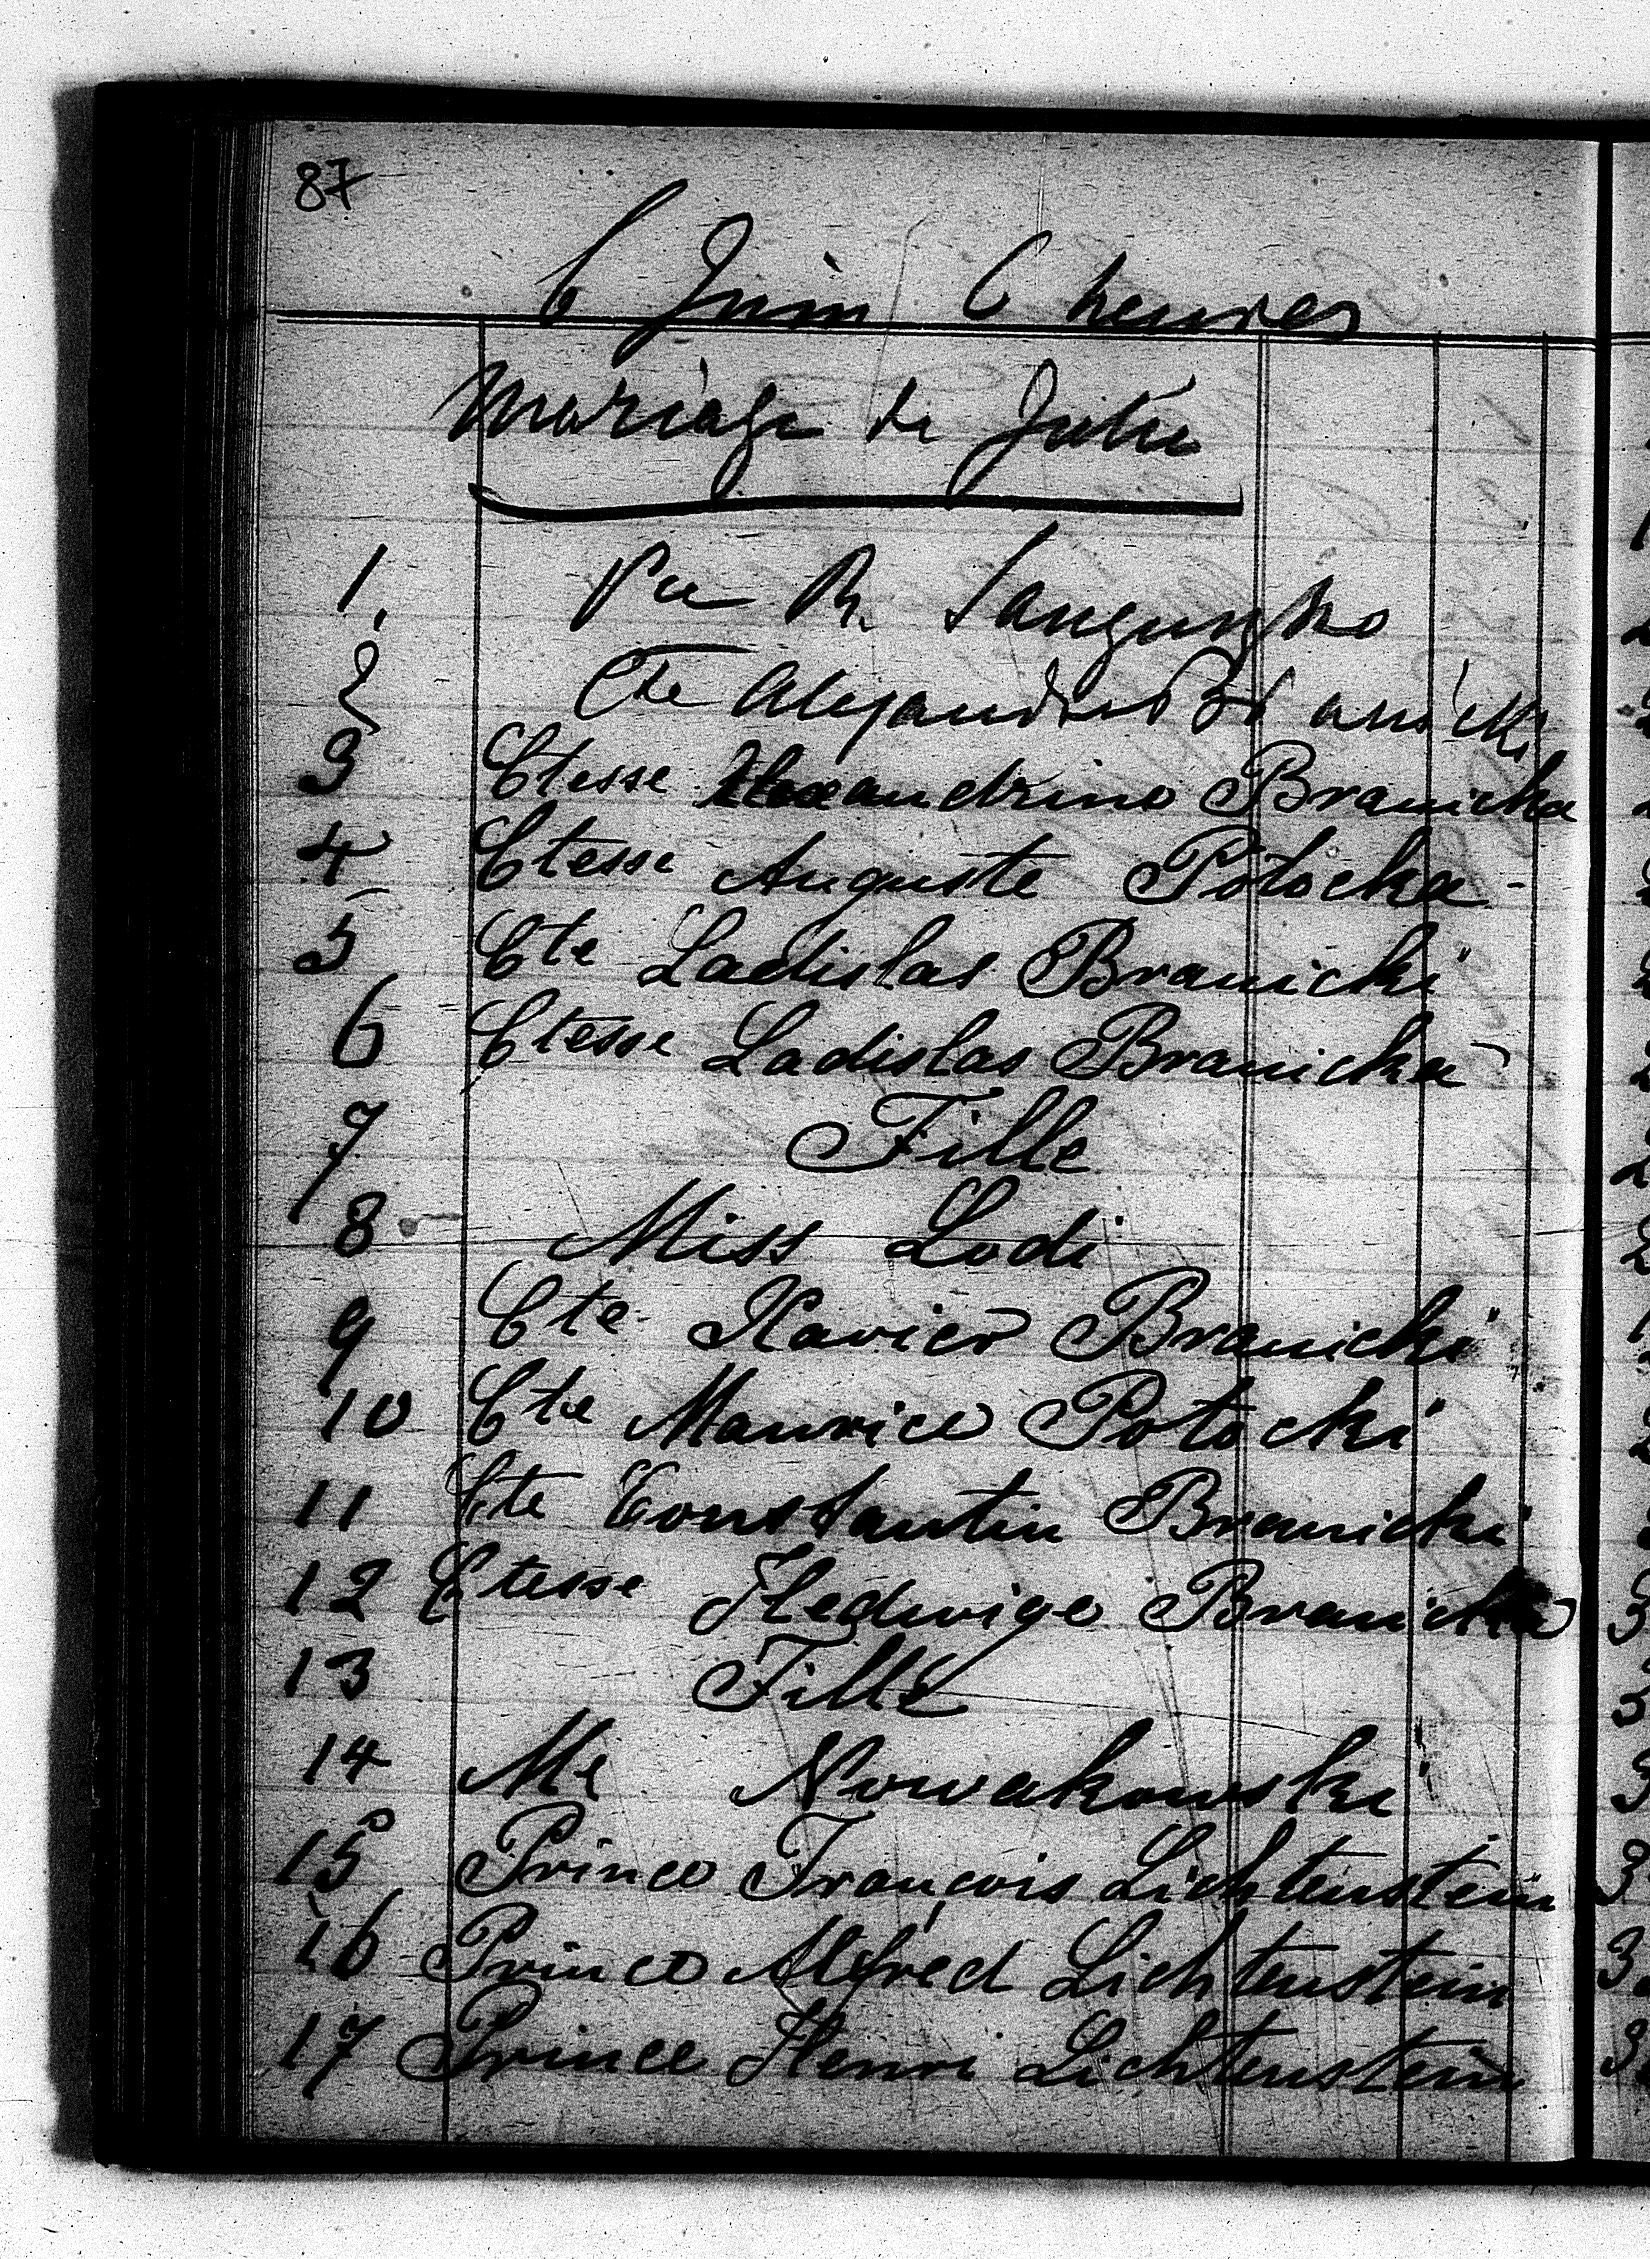 87
6 Juin 6 heures
Mariage de Julie
1, Pce R. Sanguszko
2 Cte Alexandre Branicki
3 Ctesse Alexandrine Branicka
4 Ctesse Auguste Potocka
5 Cte Ladislas Branicki
6 Ctesse Ladislas Branicka
7 Fille
8 Miss Lodi
9 Cte Xavier Branicki
10 Cte Maurice Potocki
11 Cte Constantin Branicki
12 Ctesse Hedwige Branicka
13 Fille
14 Mr Nowakowski
15 Prince François Lichtenstein
16 Prince Alfred Lichtenstein
17 Prince Henri Lichtenstein